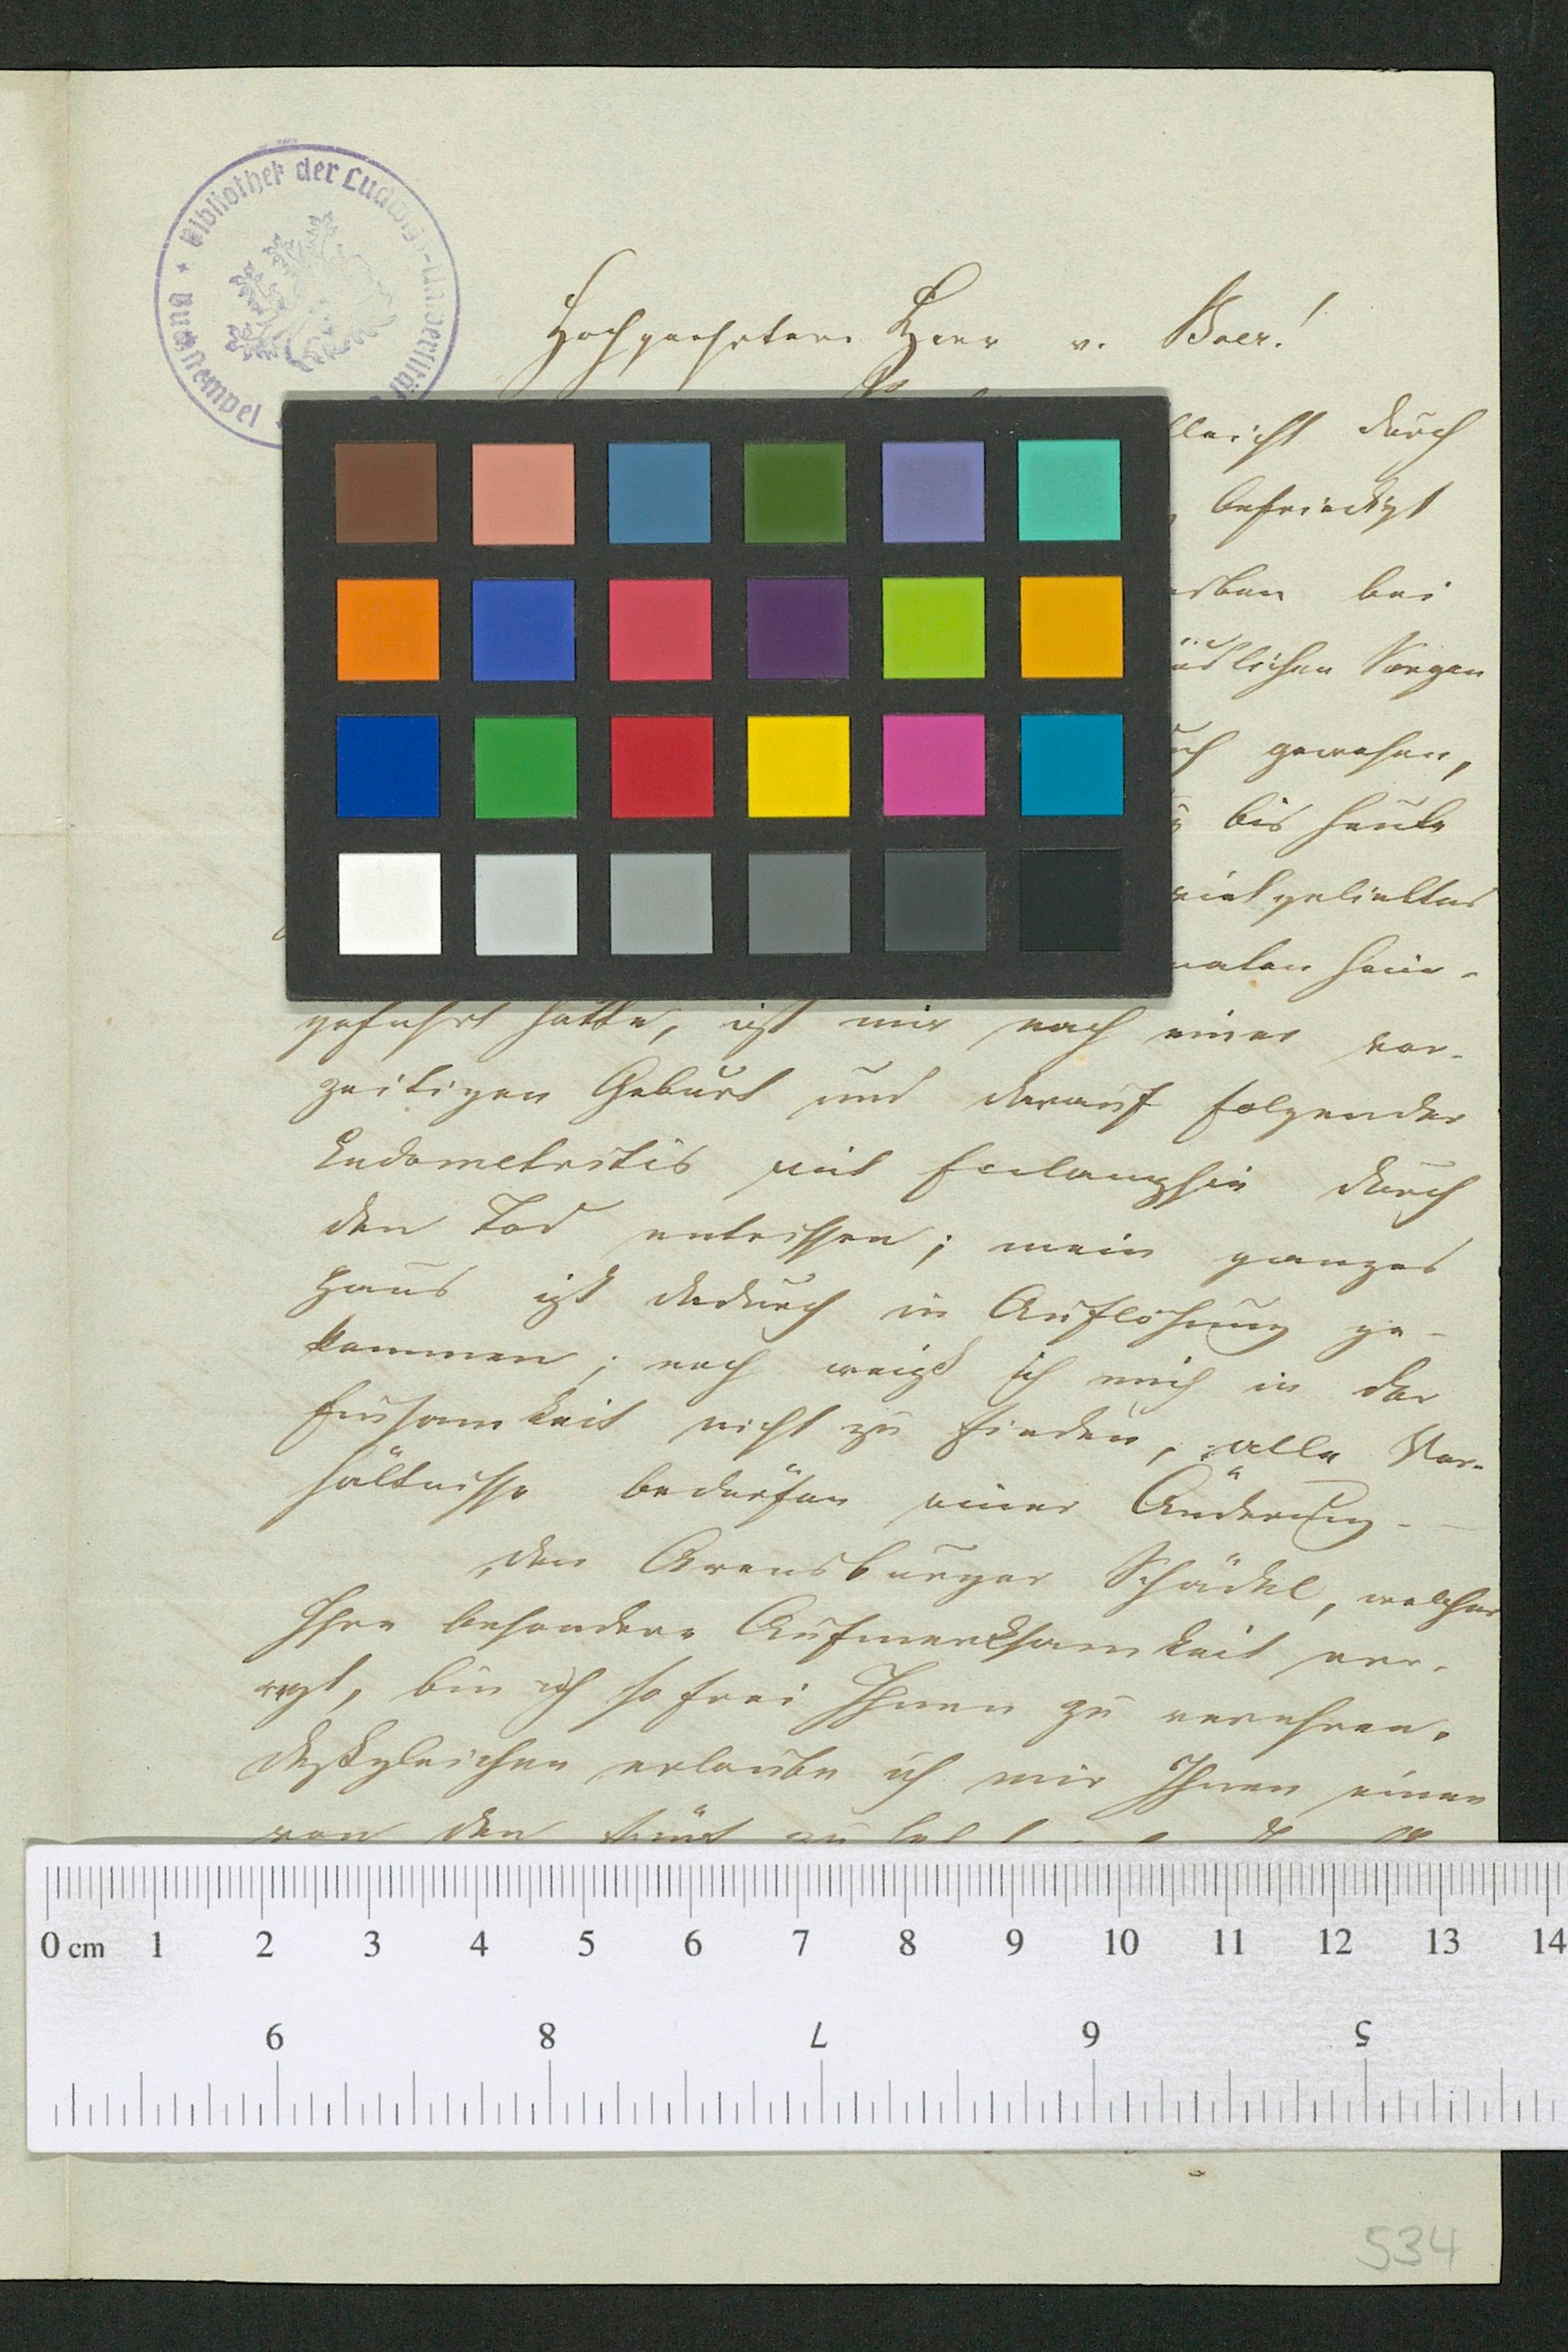 Bibliothek der Ludwigs-Universität
Hochgeehrtester Herr v. Baer!
lleicht durch
befriedigt
erben bei
ündlichen Sorgen
uch gewesen,
bis heute
vielgeliebtes
naten heim-
geführt hatte, ist mir nach einer vor-
zeitigen Geburt und darauf folgender
Endometritis mit Eclampsie durch
den Tod entrissen; mein ganzes
Haus ist dadurch in Auflösung ge-
kommen; noch weiß ich mich in der
Einsamkeit nicht zu finden, alle Ver-
hältnisse bedürfen einer Änderung. —
Den Arensburger Schädel, welcher
Ihre besondere Aufmerksamkeit er-
regt, bin ich so frei Ihnen zu verehren.
Deßgleichen erlaube ich mir Ihnen einen
von den
0 cm 1 2 3 4 5 6 7 8 9 10 11 12 13 14
9 8 7 6 5
534